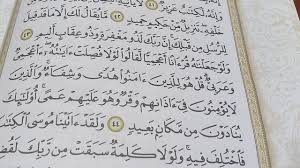 وَإِنَّهُ لَكِتَٰبٌ عَزِيزٌ ٤١ لَّا يَأْتِيهِ
خَلْفِهِۦ تَنزِيلٌ مِّنْ حَكِيمٍ حَمِيدٍ ٤٢ مَّا يُقَالُ لَكَ إِلَّا مَا
لِلرُّسُلِ مِن قَبْلِكَ إِنَّ رَبَّكَ لَذُو مَغْفِرَةٍ وَذُو عِقَابٍ أَلِيمٍ ٤٣
وَلَوْ جَعَلْنَٰهُ قُرْءَانًا أَعْجَمِيًّا لَّقَالُوا۟ لَوْلَا فُصِّلَتْ ءَايَٰتُهُۥٓ ءَا۬عْجَمِىٌّ
وَعَرَبِىٌّ قُلْ هُوَ لِلَّذِينَ ءَامَنُوا۟ هُدًى وَشِفَآءٌ وَٱلَّذِينَ
لَا يُؤْمِنُونَ فِىٓ ءَاذَانِهِمْ وَقْرٌ وَهُوَ عَلَيْهِمْ عَمًى أُو۟لَٰٓئِكَ
يُنَادَوْنَ مِن مَّكَانٍۭ بَعِيدٍ ٤٤ وَلَقَدْ ءَاتَيْنَا مُوسَى ٱلْكِتَٰبَ
فَٱخْتُلِفَ فِيهِ وَلَوْلَا كَلِمَةٌ سَبَقَتْ مِن رَّبِّكَ لَقُضِىَ